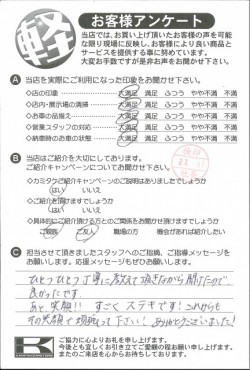 軽
お客様アンケート
当店では、お買い上げ頂いたお客様の声を可能
な限り現場に反映し、お客様により良い商品と
サービスを提供する事に努めています。
大変お手数ですが是非お声をお聞かせ下さい。
A 当店を実際にご利用になった印象をお聞かせ下さい。
◇店の印象 大満足 満足 ふつう やや不満 不満
◇店内・展示場の清掃 大満足 満足 ふつう やや不満 不満
◇お車の品揃え 大満足 満足 ふつう やや不満 不満
◇営業スタッフの対応 大満足 満足 ふつう やや不満 不満
◇納車時の状態 大満足 満足 ふつう やや不満 不満
B 当店はご紹介を大切にしております。
ご紹介キャンペーンについてお聞かせ下さい。
◇カミタケご紹介キャンペーンの説明はありましたでしょうか
はい いいえ
◇ご紹介をお願い出来ますでしょうか
はい いいえ
◇具体的にご紹介頂ける方とのご関係をお聞かせ頂けますでしょうか
ご親族 ご友人 職場の方 機会があれば紹介したい
C 担当させて頂きましたスタッフへのご指摘、ご指導メッセージを
お願いします。応援メッセージもぜひお願いします。
ひとつひとつ丁寧に教えて頂きながら聞けたので
良かったです。
あと 笑顔!! すごく ステキです! これからも
その笑顔で頑張って下さい! ありがとうございました!
K
ご協力に心よりお礼を申し上げます。
今後とも宜しくお引き立てご愛顧の程お願い申し上げます。
またのご来店を心からお待ちしております。